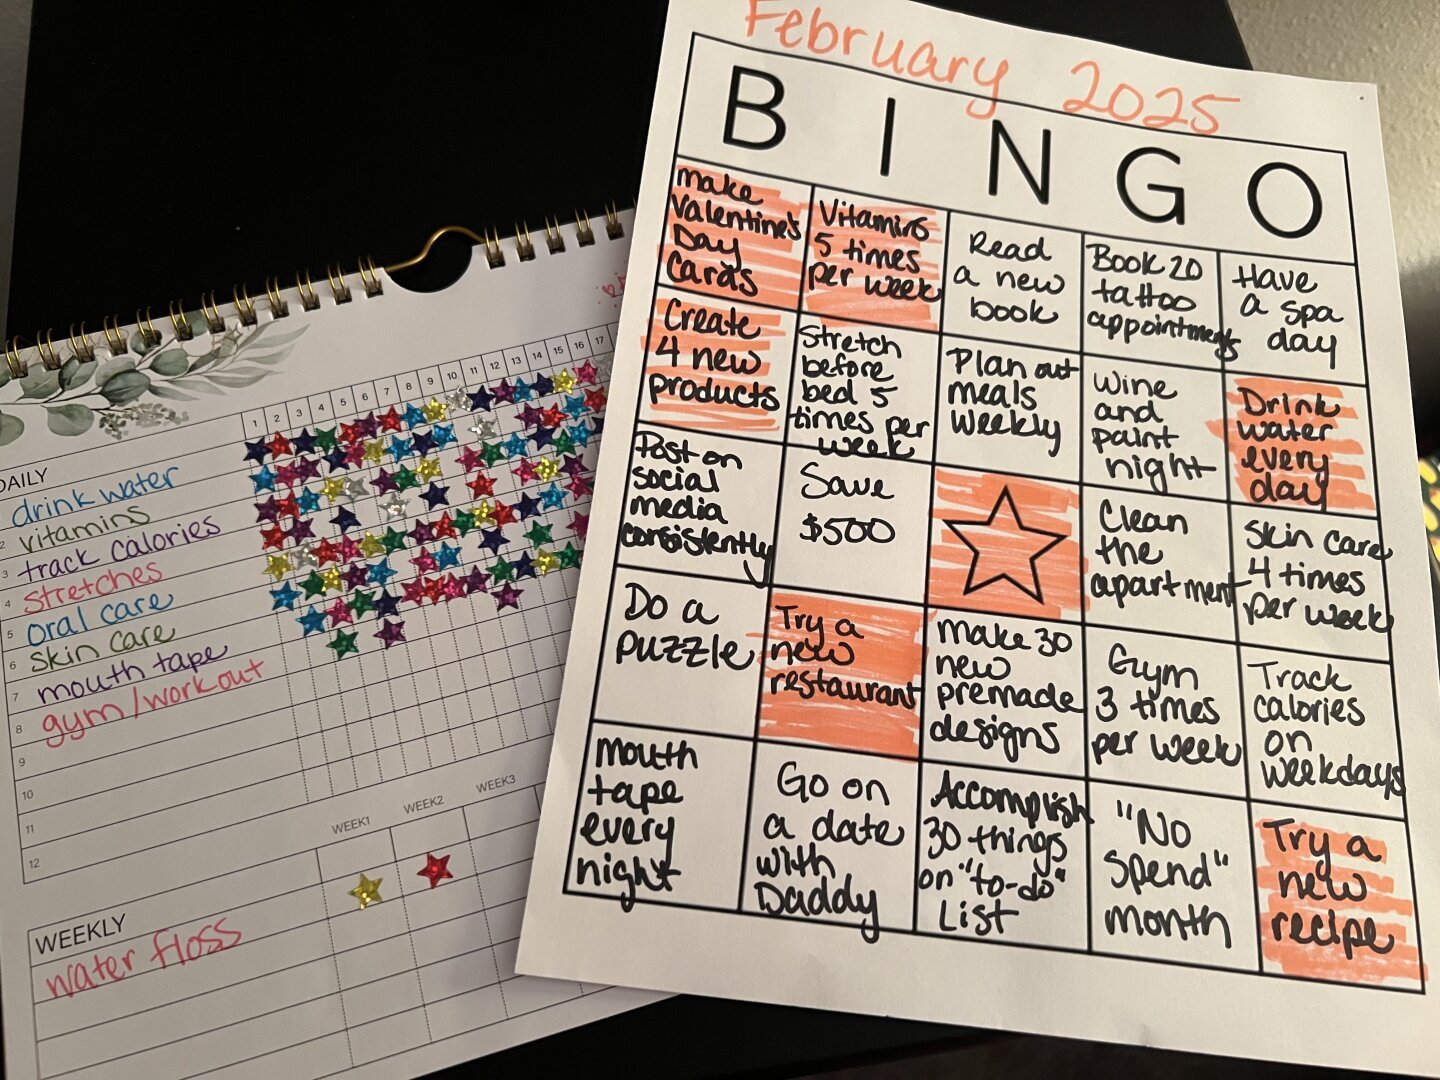 February 2025
B I N G O
make
Valentine's
Day
Cards
Vitamins
5 times
per week
Read
a new
book
Book 20
tattoo
appointments
Have
a spa
day
Create
4 new
products
Stretch
before
bed 5
times per
week
Plan out
meals
weekly
Wine
and
paint
night
Drink
water
every
day
Post on
social
media
consistently
Save
$500
Clean
the
apartment
Skin care
4 times
per week
Do a
puzzle
Try a
new
restaurant
Make 30
new
premade
designs
Gym
3 times
per week
Track
calories
on
weekdays
mouth
tape
every
night
Go on
a date
with
Daddy
Accomplish
30 things
on "to-do"
List
"No
Spend"
month
Try a
new
recipe
1 2 3 4 5 6 7 8 9 10 11 12 13 14 15 16 17
DAILY
drink water
2 vitamins
3 track calories
4 stretches
5 oral care
6 skin care
7 mouth tape
8 gym/workout
9
10
11
12
WEEK1 WEEK2 WEEK3
WEEKLY
water floss